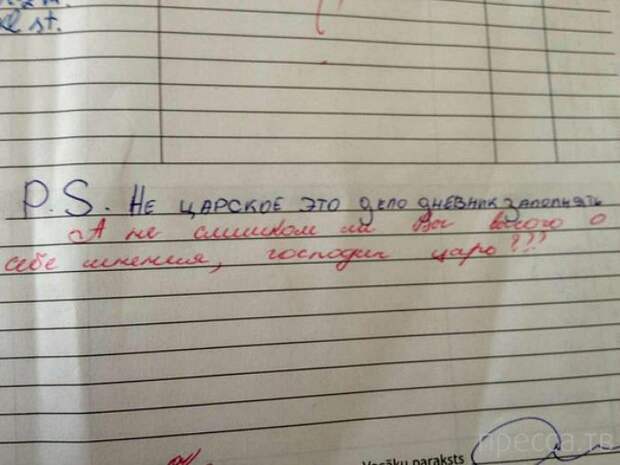 st.
P.S. Не царское это дело дневник заполнять
А не слишком ли Вы высого о
себе мнения, господин царь???
Vecāku paraksts
пресса.тв